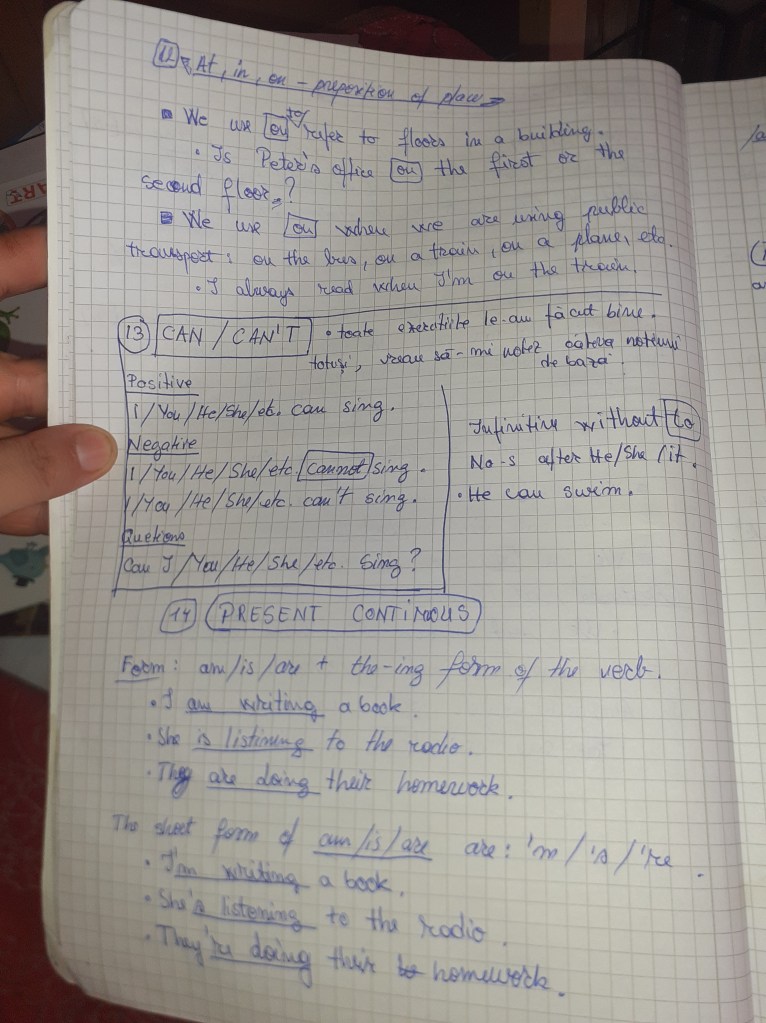 11 At, in, on - preposition of place
We use on to refer to floors in a building.
• Is Peter's office on the first or the
second floor?
We use on when we are using public
transport: on the bus, on a train, on a plane, etc.
• I always read when I'm on the train.
13 CAN / CAN'T • toate exercițiile le-au făcut bine.
totuși, vreau să-mi notez câteva noțiuni
de bază.
Positive
I/You/He/She/etc. can sing.
Negative
I/You/He/She/etc. cannot sing.
I/You/He/She/etc. can't sing.
Quetions
Can I/You/He/She/etc. Sing?
Infinitive without to
No -s after He/She/it.
• He can swim.
14 PRESENT CONTINUOUS
Form: am/is/are + the -ing form of the verb.
• I am writing a book.
• She is listining to the radio.
• They are doing their homework.
The short form of am/is/are are: 'm/'s/'re.
• I'm writing a book.
• She's listening to the radio.
• They're doing their homework.